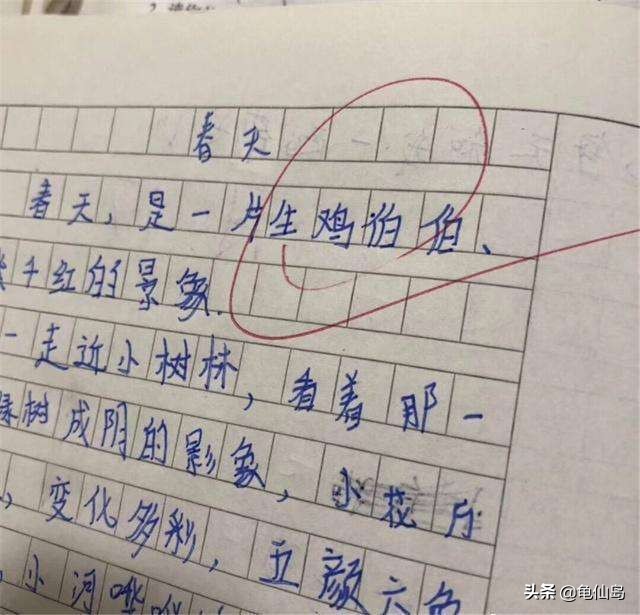 春天
春天,是一片生鸡伯伯、
千红的景象.
一走近小树林,看着那一
树成阴的影象,小花
,变化多彩,五颜六色
小河哗
头条 @龟仙岛